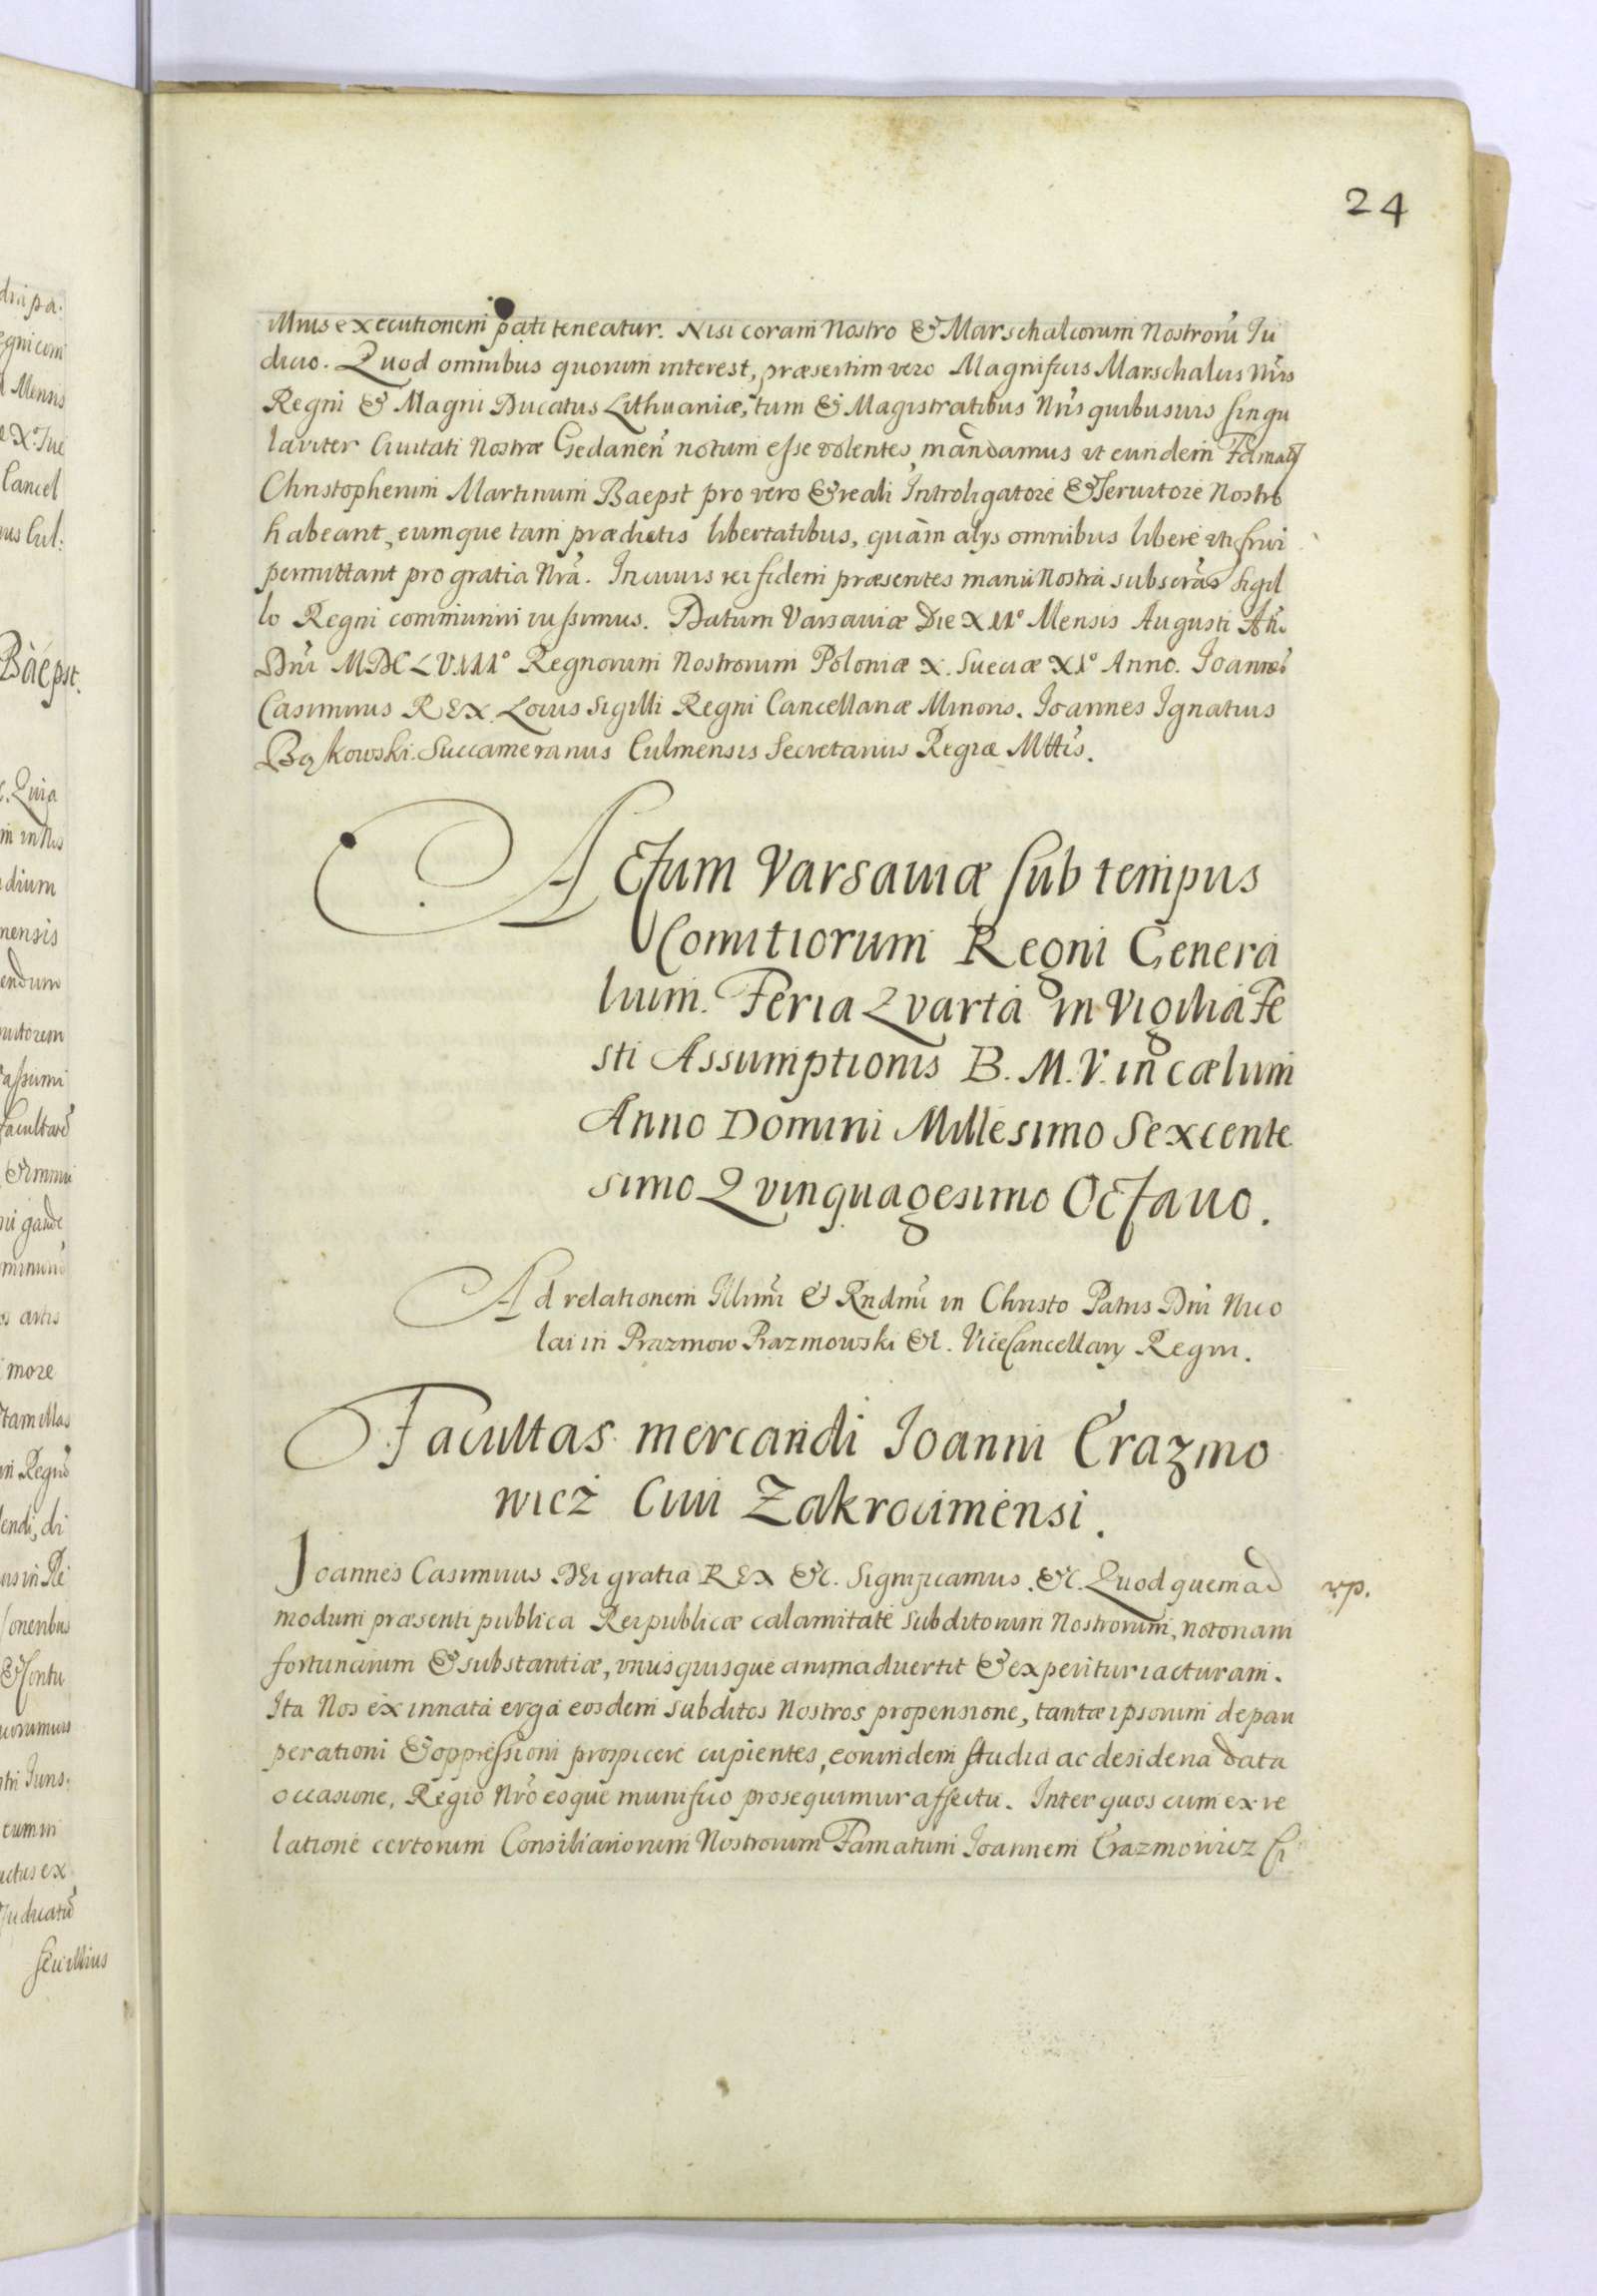 24
illius executionem pati teneatur. Nisi coram Nostro & Marschalcorum Nostrorũ Iu
dicio. Quod omnibus quorum interest, præsertim vero Magnificis Marschalcis Nr̃is
Regni & Magni Ducatus Lithuaniæ, tum & Magistratibus Nr̃is quibusuis singu
lariter Ciuitati Nostræ Gedanen̄ notum esse volentes, mandamus vt eundem
Christopherum Martinum Baepst pro vero & reali Introligatore & Seruitore Nostro
habeant, eumque tam prædictis libertatibus, quàm alys omnibus liberè vti frui
permittant pro gratia Nr̃a. In cuius rei fidem præsentes manu Nostra subscr̃as Sigil
lo Regni communiri iussimus. Datum Varsauiæ Die XII° Mensis Augusti An̄o
Dn̄i MDCLVIII° Regnorum Nostrorum Poloniæ X. Sueciæ XI° Anno. Ioannes
Casimirus REX. Locus Sigilli Regni Cancellariæ Minoris. Ioannes Ignatius
Bąkowski Succamerarius Culmensis Secretarius Regiæ Mttis.
Actum Varsauiæ sub tempus
Comitiorum Regni Genera
lium. Feria Qvarta in Vigilia Fe
sti Assumptionis B. M. V. in cælum
Anno Domini Millesimo Sexcente
simo Qvinquagesimo Octauo.
Ad relationem Illmi & Rndmi in Christo Patris Dn̄i Nico
lai in Prazmow Prazmowski &c. ViceCancellarÿ Regni.
Facultas mercandi Ioanni Erazmo
wicz Ciui Zakrocimensi.
Ioannes Casimirus DEi gratia REX &c. Significamus. &c. Quod quemad
rp.
modum præsenti publica Reipublicæ calamitate subditorum Nostrorum, notoriam
fortunarum & substantiæ, vnusquisque animaduertit & experitur iacturam.
Ita Nos ex innata erga eosdem subditos Nostros propensione, tantæ ipsorum depau
perationi & oppressioni prospicere cupientes, eorundem studia ac desideria data
occasione, Regio Nr̃o eoque munifico prosequimur affectu. Inter quos cum ex re
latione certorum Consiliariorum Nostrorum Famatum Ioannem Erazmowicz Ci